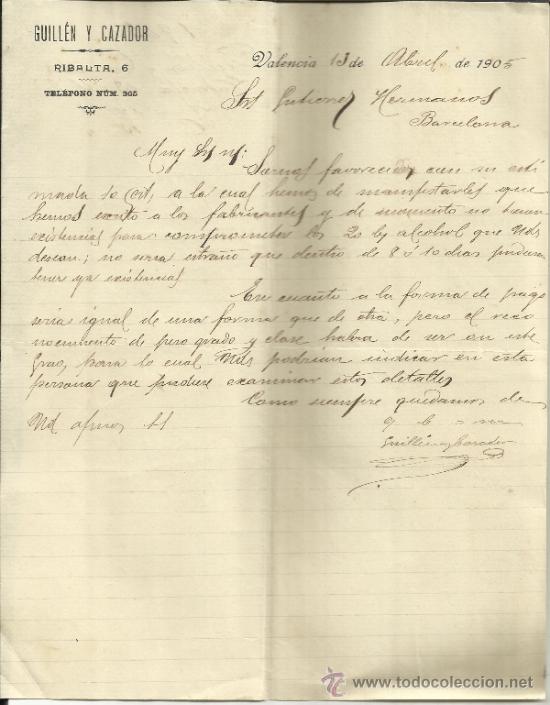 GUILLÉN Y CAZADOR
RIBALTA, 6
TELÉFONO NÚM. 365
Valencia 13 de Abril de 1905
Gutierrez Hermanos
Barcelona
Muy
favorecidos con su esti
mada 10 a la cual hemos de manifestarles que
hemos escrito a los fabricantes y de momento no tienen
existencias para comprometer los 20 alcohol que Uds
desean; no seria extraño que dentro de 8 ó 10 dias pudieran
tener ya existencias
En cuanto a la forma de pago
seria igual de una forma que de otra, pero el reco
nocimiento de peso grado y clase habra de ser en este
Grao, para lo cual Uds podrian indicar en esta
persona que pudiese examinar estos detalles
Como siempre quedamos de
Ud afmos SS
q b s m
Guillén y Cazador
www.todocoleccion.net